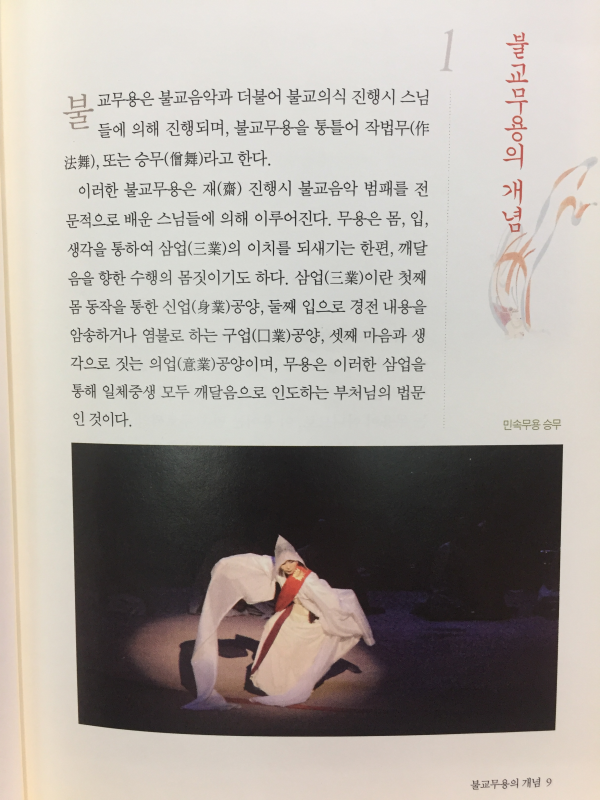 1
불교무용의 개념
불교무용은 불교음악과 더불어 불교의식 진행시 스님
들에 의해 진행되며, 불교무용을 통틀어 작법무(作
法舞), 또는 승무(僧舞)라고 한다.
이러한 불교무용은 재(齋) 진행시 불교음악 범패를 전
문적으로 배운 스님들에 의해 이루어진다. 무용은 몸, 입,
생각을 통하여 삼업(三業)의 이치를 되새기는 한편, 깨달
음을 향한 수행의 몸짓이기도 하다. 삼업(三業)이란 첫째
몸 동작을 통한 신업(身業)공양, 둘째 입으로 경전 내용을
암송하거나 염불로 하는 구업(口業)공양, 셋째 마음과 생
각으로 짓는 의업(意業)공양이며, 무용은 이러한 삼업을
통해 일체중생 모두 깨달음으로 인도하는 부처님의 법문
인 것이다.
민속무용 승무
불교무용의 개념 9